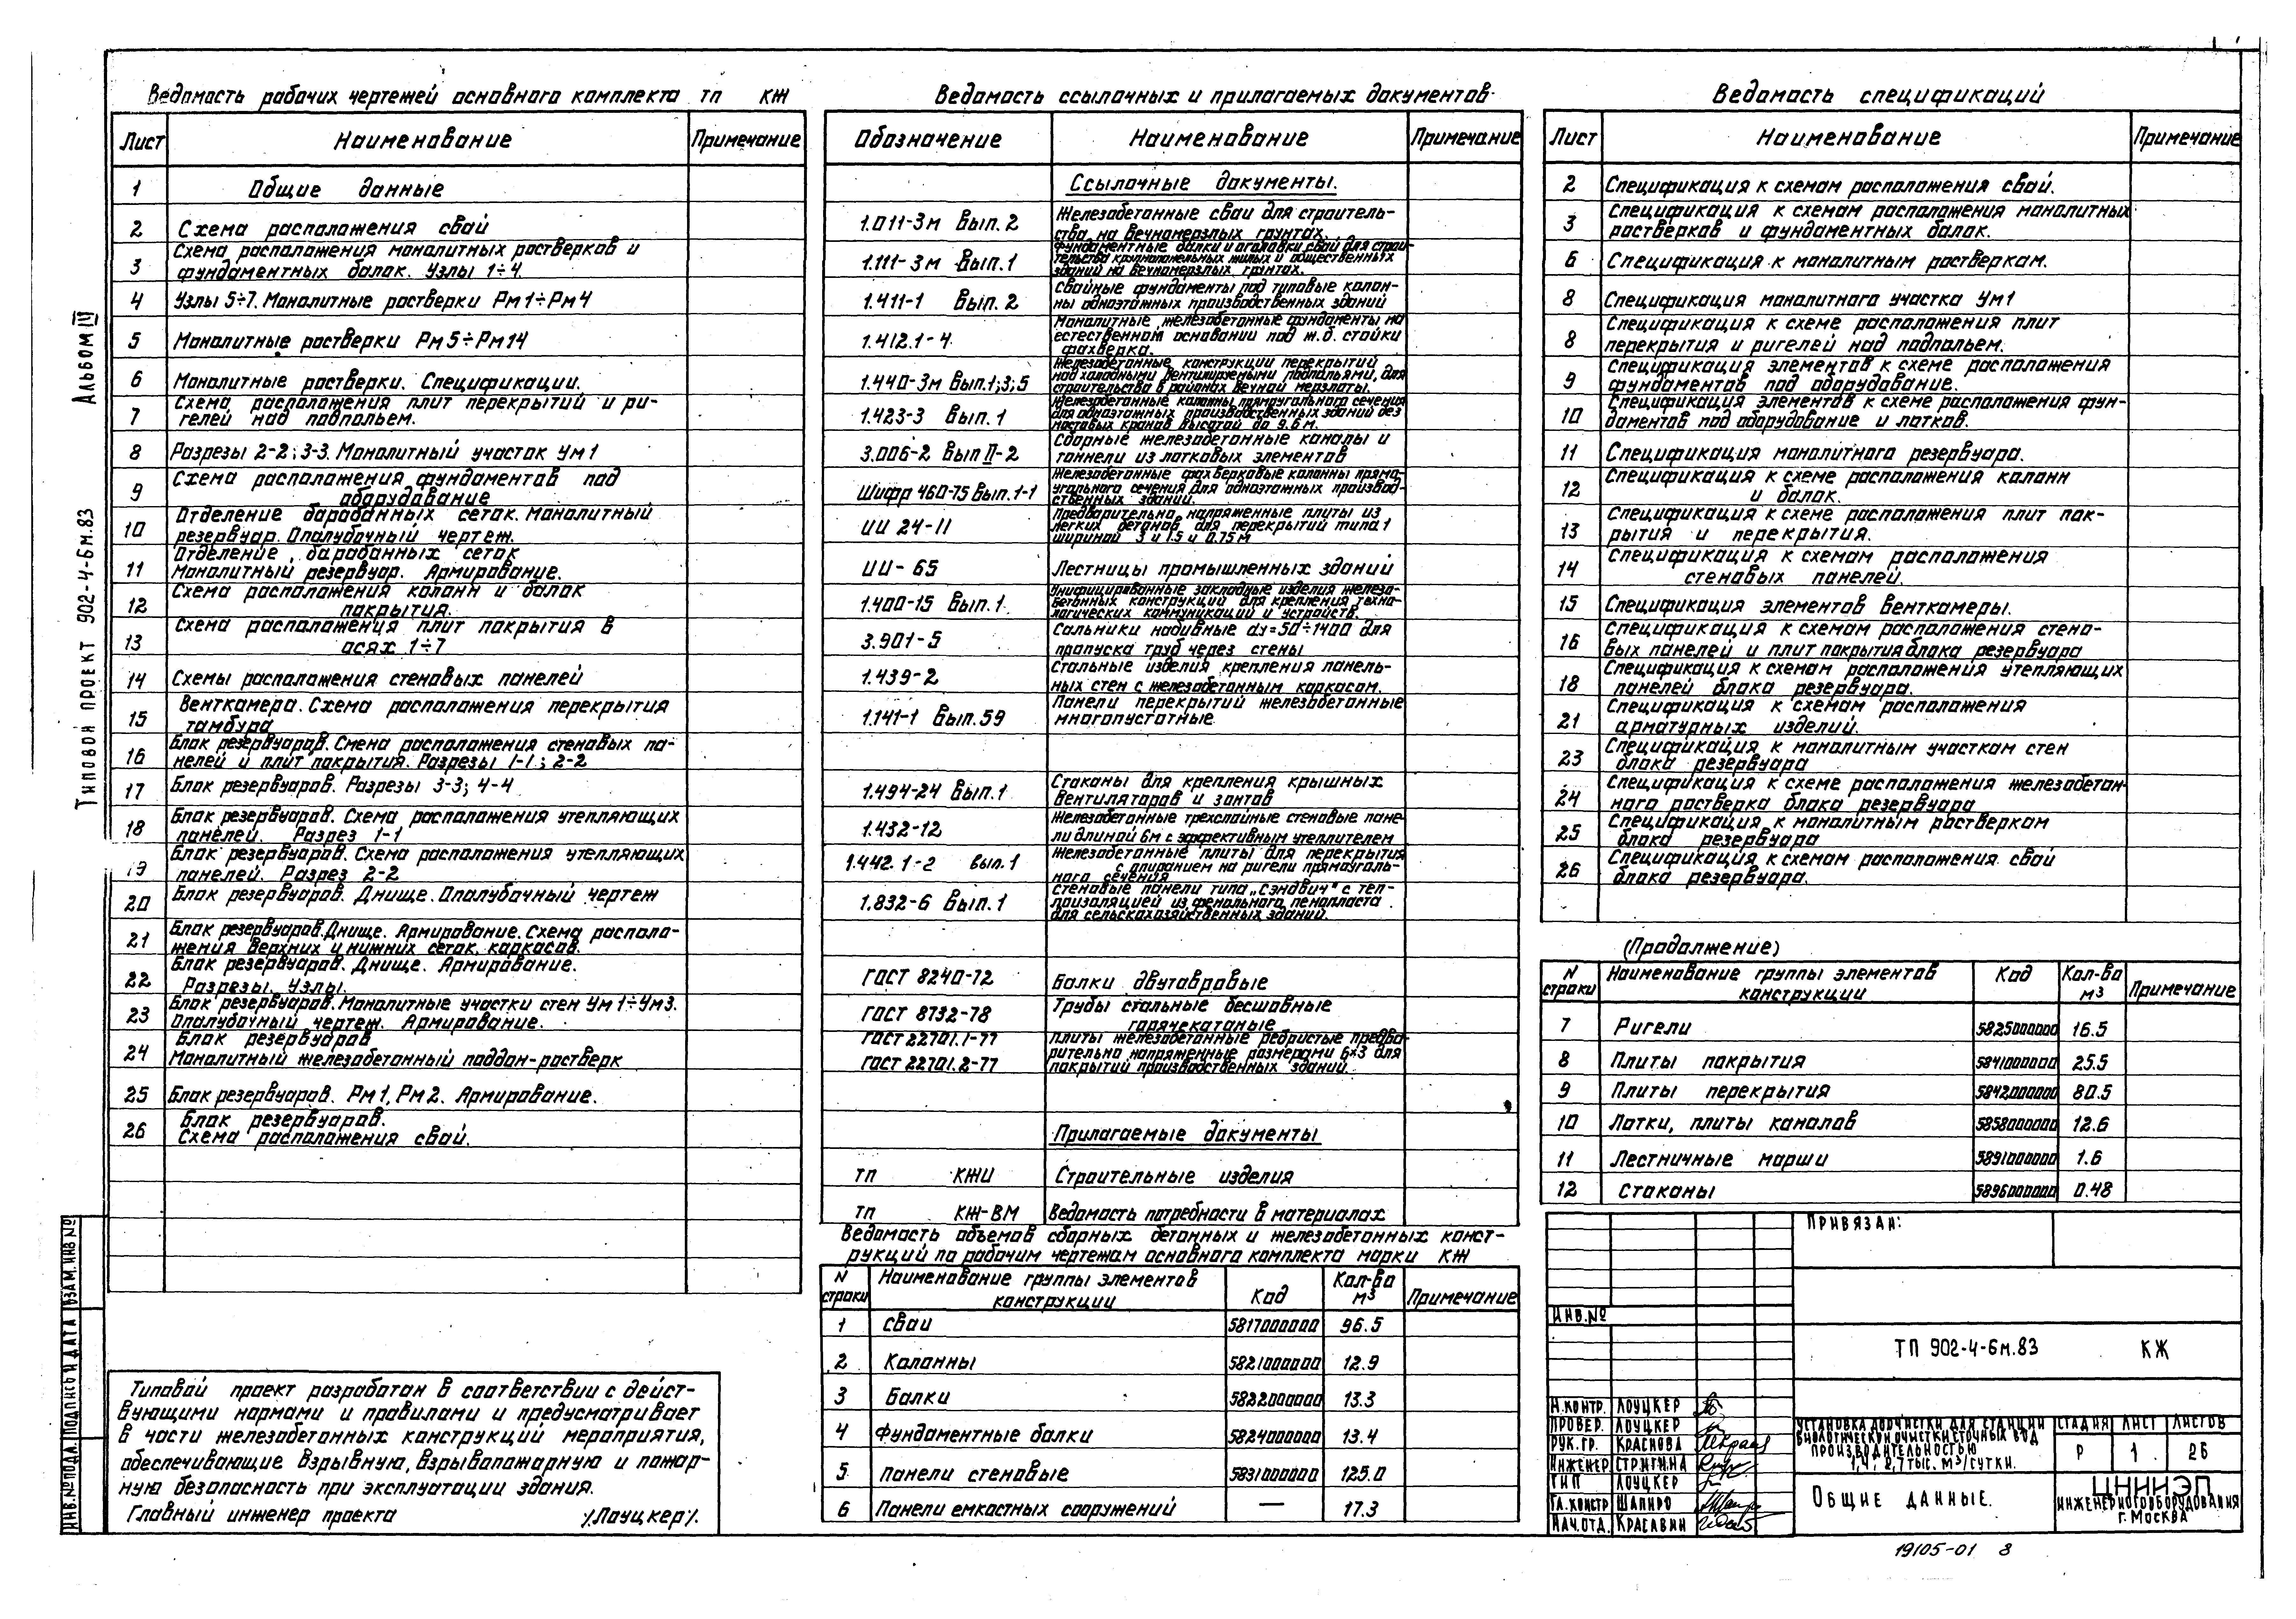 Альбом III
Типовой проект 902-4-6м.83
Ведомость рабочих чертежей основного комплекта тп КЖ
Лист Наименование Примечание
1 Общие данные
2 Схема расположения свай
3 Схема расположения монолитных ростверков и
фундаментных балок. Узлы 1÷4.
4 Узлы 5÷7. Монолитные ростверки Рм1÷Рм4
5 Монолитные ростверки Рм5÷Рм14
6 Монолитные ростверки. Спецификации.
7 Схема расположения плит перекрытий и ри-
гелей над подпольем.
8 Разрезы 2-2; 3-3. Монолитный участок Ум1
9 Схема расположения фундаментов под
оборудование
10 Отделение барабанных сеток. Монолитный
резервуар. Опалубочный чертеж.
11 Отделение барабанных сеток
Монолитный резервуар. Армирование.
12 Схема расположения колонн и балок
покрытия.
13 Схема расположения плит покрытия в
осях 1÷7
14 Схемы расположения стеновых панелей
15 Венткамера. Схема расположения перекрытия
тамбура
16 Блок резервуаров. Смена расположения стеновых па-
нелей и плит покрытия. Разрезы 1-1; 2-2
17 Блок резервуаров. Разрезы 3-3; 4-4
18 Блок резервуаров. Схема расположения утепляющих
панелей. Разрез 1-1
19 Блок резервуаров. Схема расположения утепляющих
панелей. Разрез 2-2
20 Блок резервуаров. Днище. Опалубочный чертеж
21 Блок резервуаров. Днище. Армирование. Схема располо-
жения верхних и нижних сеток, каркасов.
22 Блок резервуаров. Днище. Армирование.
Разрезы. Узлы.
23 Блок резервуаров. Монолитные участки стен Ум1÷Ум3.
Опалубочный чертеж. Армирование.
24 Блок резервуаров
Монолитный железобетонный поддон-ростверк
25 Блок резервуаров. Рм1, Рм2. Армирование.
26 Блок резервуаров.
Схема расположения свай.
Типовой проект разработан в соответствии с дейст-
вующими нормами и правилами и предусматривает
в части железобетонных конструкций мероприятия,
обеспечивающие взрывную, взрывопожарную и пожар-
ную безопасность при эксплуатации здания.
Главный инженер проекта /Лоуцкер/.
Ведомость ссылочных и прилагаемых документов
Обозначение Наименование Примечание
Ссылочные документы.
1.011-3м Вып. 2 Железобетонные сваи для строитель-
ства на вечномерзлых грунтах.
1.111-3м Вып. 1 Фундаментные балки и оголовки свай для строи-
тельства крупнопанельных жилых и общественных
зданий на вечномерзлых грунтах.
1.411-1 Вып. 2 Свайные фундаменты под типовые колон-
ны одноэтажных производственных зданий
1.412.1-4 Монолитные железобетонные фундаменты на
естественном основании под ж.б. стойки
фахверка.
1.440-3м Вып. 1; 3; 5 Железобетонные конструкции перекрытий
над холодными вентилируемыми подпольями, для
строительства в районах вечной мерзлоты.
1.423-3 Вып. 1 Железобетонные колонны прямоугольного сечения
для одноэтажных производственных зданий без
мостовых кранов высотой до 9.6 м.
3.006-2 Вып II-2 Сборные железобетонные каналы и
тоннели из лотковых элементов
Шифр 460-75 Вып. 1-1 Железобетонные фахверковые колонны прямо-
угольного сечения для одноэтажных производ-
ственных зданий.
ИИ 24-11 Предварительно напряженные плиты из
легких бетонов для перекрытий типа 1
шириной 3 и 1.5 и 0.75 м
ИИ-65 Лестницы промышленных зданий
1.400-15 Вып. 1 Унифицированные закладные изделия железо-
бетонных конструкций для крепления техно-
логических коммуникаций и устройств.
3.901-5 Сальники набивные dу=50÷1400 для
пропуска труб через стены
1.439-2 Стальные изделия крепления панель-
ных стен с железобетонным каркасом.
1.141-1 Вып. 59 Панели перекрытий железобетонные
многопустотные
1.494-24 Вып. 1 Стаканы для крепления крышных
вентиляторов и зонтов
1.432-12 Железобетонные трехслойные стеновые пане-
ли длиной 6м с эффективным утеплителем
1.442.1-2 вып. 1 Железобетонные плиты для перекрытия
с опиранием на ригели прямоуголь-
ного сечения
1.832-6 Вып. 1 Стеновые панели типа „Сэндвич" с теп-
лоизоляцией из фенольного пенопласта
для сельскохозяйственных зданий.
ГОСТ 8240-72 Балки двутавровые
ГОСТ 8732-78 Трубы стальные бесшовные
горячекатаные
ГОСТ 22701.1-77 Плиты железобетонные ребристые предва-
рительно напряженные размерами 6×3 для
ГОСТ 22701.2-77 покрытий производственных зданий.
Прилагаемые документы
тп КЖИ Строительные изделия
тп КЖ-ВМ Ведомость потребности в материалах
Ведомость объемов сборных бетонных и железобетонных конст-
рукций по рабочим чертежам основного комплекта марки КЖ
N строки Наименование группы элементов конструкции Код Кол-во м3 Примечание
1 Сваи 5817000000 96.5
2 Колонны 5821000000 12.9
3 Балки 5822000000 13.3
4 Фундаментные балки 5824000000 13.4
5 Панели стеновые 5831000000 125.0
6 Панели емкостных сооружений — 17.3
Ведомость спецификаций
Лист Наименование Примечание
2 Спецификация к схемам расположения свай.
3 Спецификация к схемам расположения монолитных
ростверков и фундаментных балок.
6 Спецификация к монолитным ростверкам.
8 Спецификация монолитного участка Ум1
8 Спецификация к схеме расположения плит
перекрытия и ригелей над подпольем.
9 Спецификация элементов к схеме расположения
фундаментов под оборудование.
10 Спецификация элементов к схеме расположения фун-
даментов под оборудование и лотков.
11 Спецификация монолитного резервуара.
12 Спецификация к схеме расположения колонн
и балок.
13 Спецификация к схеме расположения плит пок-
рытия и перекрытия.
14 Спецификация к схемам расположения
стеновых панелей.
15 Спецификация элементов венткамеры.
16 Спецификация к схемам расположения стено-
вых панелей и плит покрытия блока резервуара
18 Спецификация к схемам расположения утепляющих
панелей блока резервуара.
21 Спецификация к схемам расположения
арматурных изделий.
23 Спецификация к монолитным участкам стен
блока резервуара
24 Спецификация к схеме расположения железобетон-
ного ростверка блока резервуара
25 Спецификация к монолитным ростверкам
блока резервуара
26 Спецификация к схемам расположения свай
блока резервуара.
(Продолжение)
N строки Наименование группы элементов конструкции Код Кол-во м3 Примечание
7 Ригели 5825000000 16.5
8 Плиты покрытия 5841000000 25.5
9 Плиты перекрытия 5842000000 80.5
10 Лотки, плиты каналов 5858000000 12.6
11 Лестничные марши 5891000000 1.6
12 Стаканы 5896000000 0.48
Привязан:
Инв.№
ТП 902-4-6м.83 КЖ
Н.контр. Лоуцкер
Провер. Лоуцкер
Рук.гр. Краснова
Инженер Стригина
ГИП Лоуцкер
Гл.констр Шапиро
Нач.отд. Красавин
Установка доочистки для станции
биологической очистки сточных вод
производительностью
1,4; 2,7 тыс. м3/сутки.
Стадия Лист Листов
Р 1 26
Общие данные.
ЦНИИЭП
инженерного оборудования
г. Москва
Инв.№ подл. Подпись и дата Взам.инв №
19105-01 8